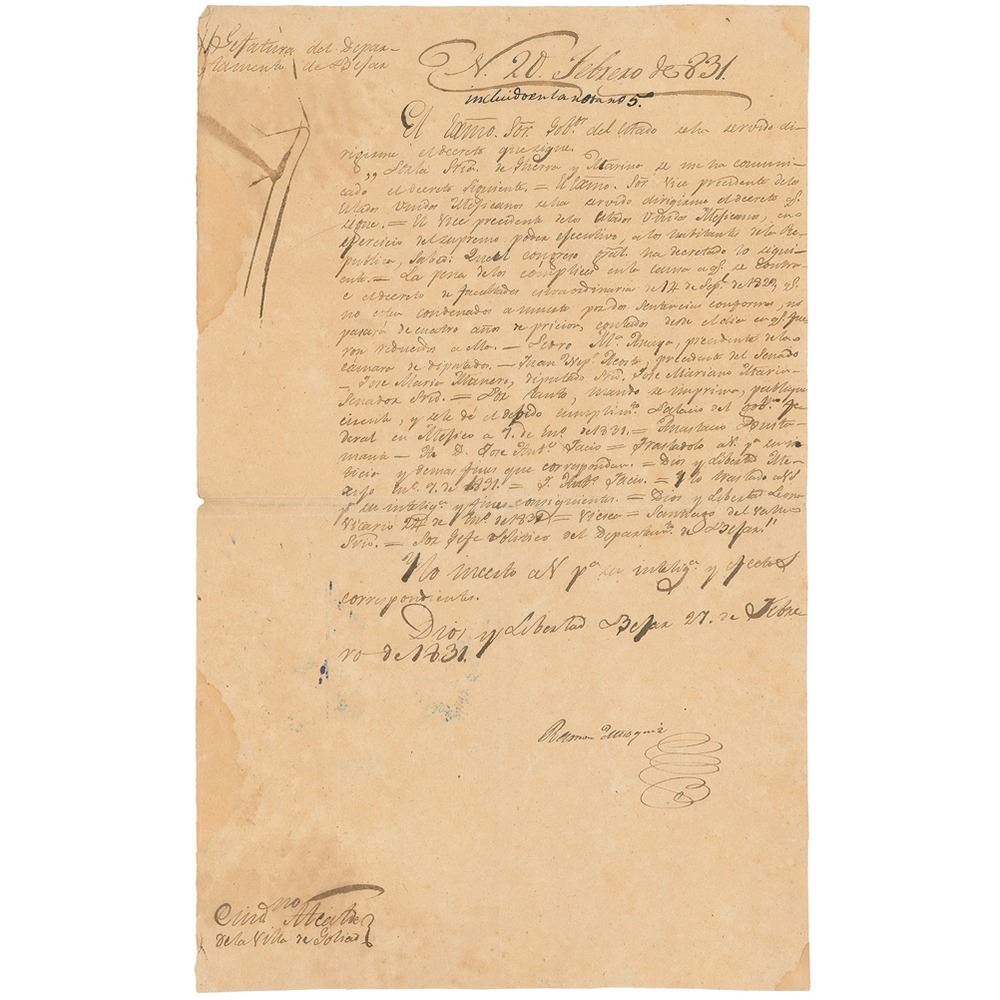 Gefatura del Depar-
tamento de Bejar
N. 20. Febrero de 831.
incluido en la no 5.
El Exmo. Sor. Gobor. del Estado se ha servido di-
rigirme el decreto que sigue.
„ Por la Sria. de Guerra y Marina se me ha comuni-
cado el decreto siguiente. = El Exmo. Sor. Vice presidente de los
Estados Unidos Mejicanos se ha servido dirigirme el decreto q.
sigue. = El Vice presidente de los Estados Unidos Mejicanos, en
ejercicio del supremo poder ejecutivo, a los habitantes de la Re-
publica, sabed: Que el congreso gral. ha decretado lo siguien-
te. = La pena de los complices en la causa a q. se contra-
e el decreto de facultades estraordinarias de 14 de Sepe. de 1829 q.
no esten condenados a muerte por dos sentencias conformes, no
pasará de cuatro años de pricion, contados desde el dia en q. fue-
ron reducidos a ella. — Pedro Ma. Anaya, presidente de la
cámara de diputados. — Juan Nepo. Acosta, presidente del Senado
— Jose Maria Manero, diputado Srio. Jose Mariano Marin
Senador Srio. = Por tanto, mando se imprima, publique
circule, y se le dé el debido cumplimto. Palacio del gobo. fe-
deral en Mejico a 7. de Eno. de 1831. = Anastacio Busta-
mante — A D. Jose Anto. Facio = Trasladolo a V. pa. su in
telicia y demas fines que correspondan. = Dios y Libertad Me-
xijo Eno. 7. de 1831. = J. Anto. Facio. = Y lo traslado a V.S
pa. su inteliga. y fines consiguientes. = Dios y Libertad Leona
Vicario 24 de Eno. de 1831 = Viesca = Santiago del Valle
Srio. = Sor. Gefe Politico del Departamto. de Bejar."
Y lo inserto a V pa. su inteliga. y efectos
correspondientes.
Dios y Libertad Bejar 27. de Febre
ro de 1831.
Ramon Musquiz
Ciudno. Alcalde
de la Villa de Goliad